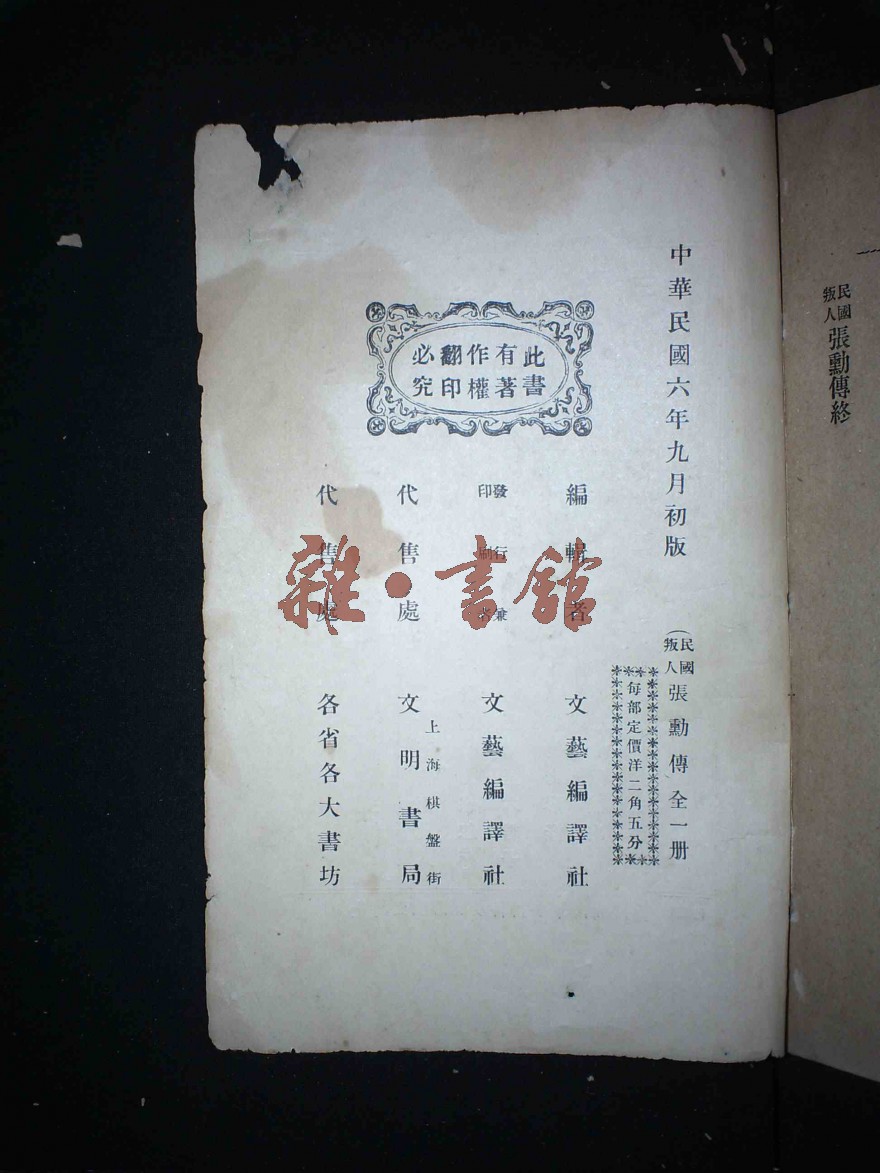 民國叛人張勳傳終
中華民國六年九月初版
(民國叛人張勳傳全一册
每部定價洋二角五分
此書有著作權翻印必究
編輯者 文藝編譯社
發行兼印刷者 文藝編譯社
代售處 上海棋盤街文明書局
代售處 各省各大書坊
雜·書館